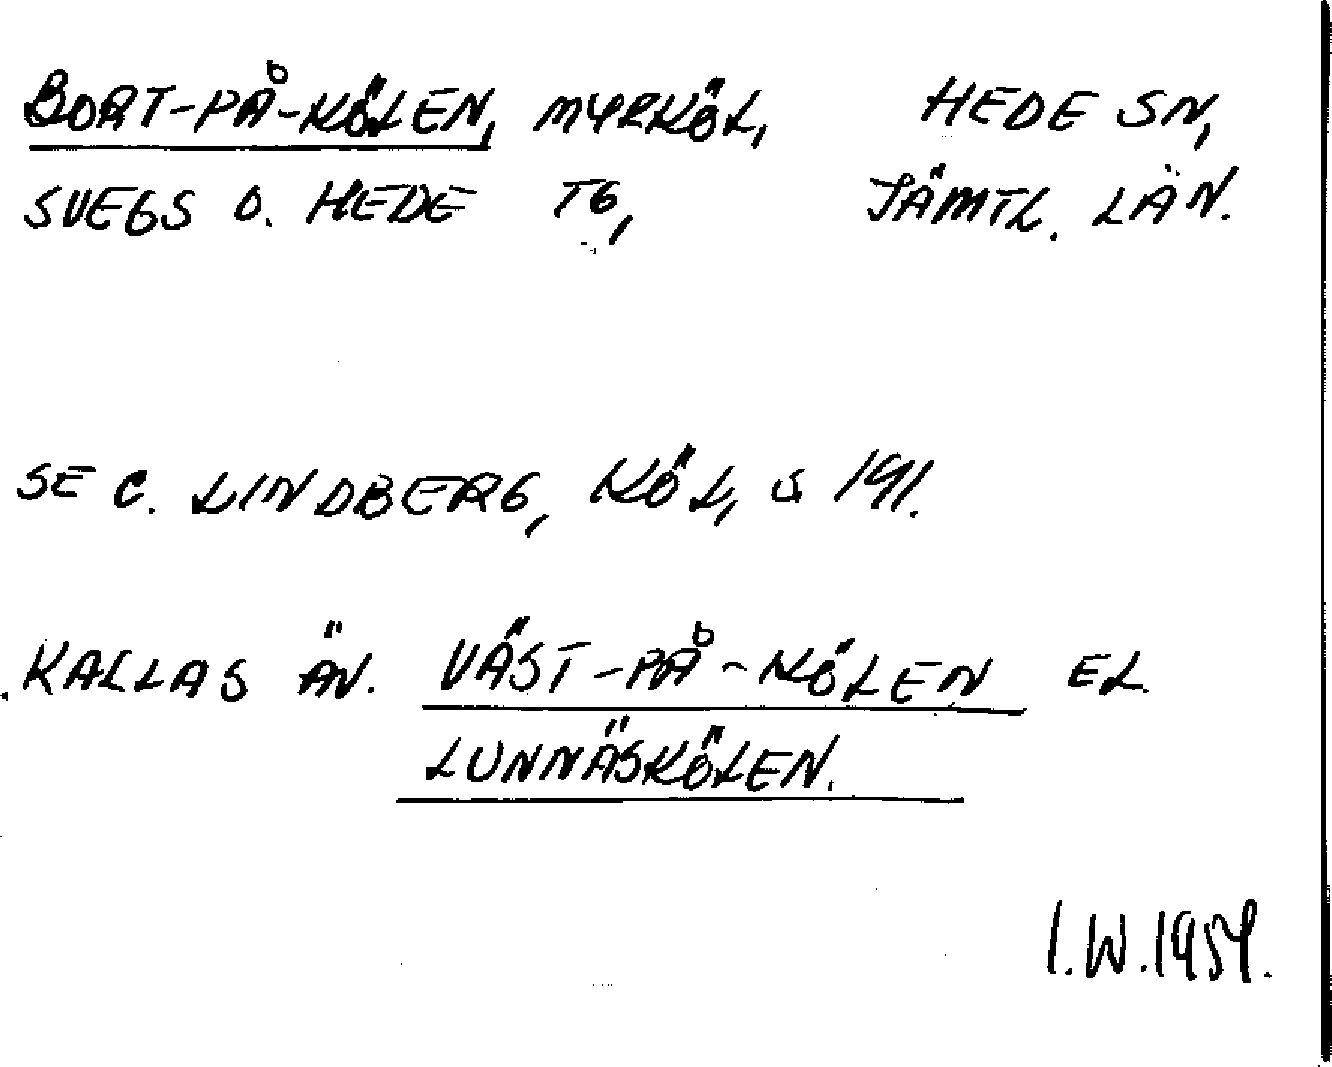 BORT-PÅ-KÖLEN, MYRKÖL, HEDE SN,
SVEGS O. HEDE TG, JÄMTL. LÄN.
SE C. LINDBERG, KÖL, S 191.
KALLAS ÄV. VÄST-PÅ-KÖLEN EL.
LUNNÄSKÖLEN.
I.W.1959.